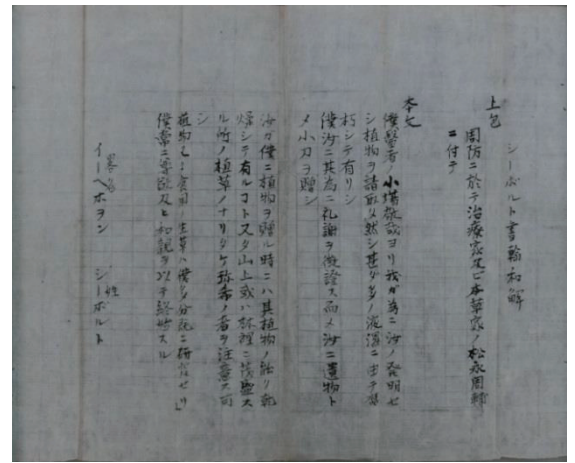 シーボルト書翰和解
上包
周防ニ於テ治療家及ビ本草家ノ松永周
ニ付テ
本文
僕醫者小 敬 ヨリ我ガ為ニ汝ノ発明セ
シ植物ヲ請取タ然シ甚ダ多ノ液湿ニ由テ皆
朽シテ有リシ
僕汝ニ其為ニ礼謝ヲ 證ス而メ汝ニ遺物ト
メ小刀ヲ贈シ
汝ガ僕ニ植物ヲ贈ル時ニハ其植物ノ能ク乾
燥シテ有ルコト又タ山上或ハ林裡ニ茂盛ス
ル所ノ植草ノナリタケ珎希ノ者ヲ注意ス可
シ
植物 食用 生草ハ僕多分既ニ セリ
僕常ニ尊敬及ヒ和親ヲ以テ終始スル
畧名 姓
イーヘホヲン シーボルト